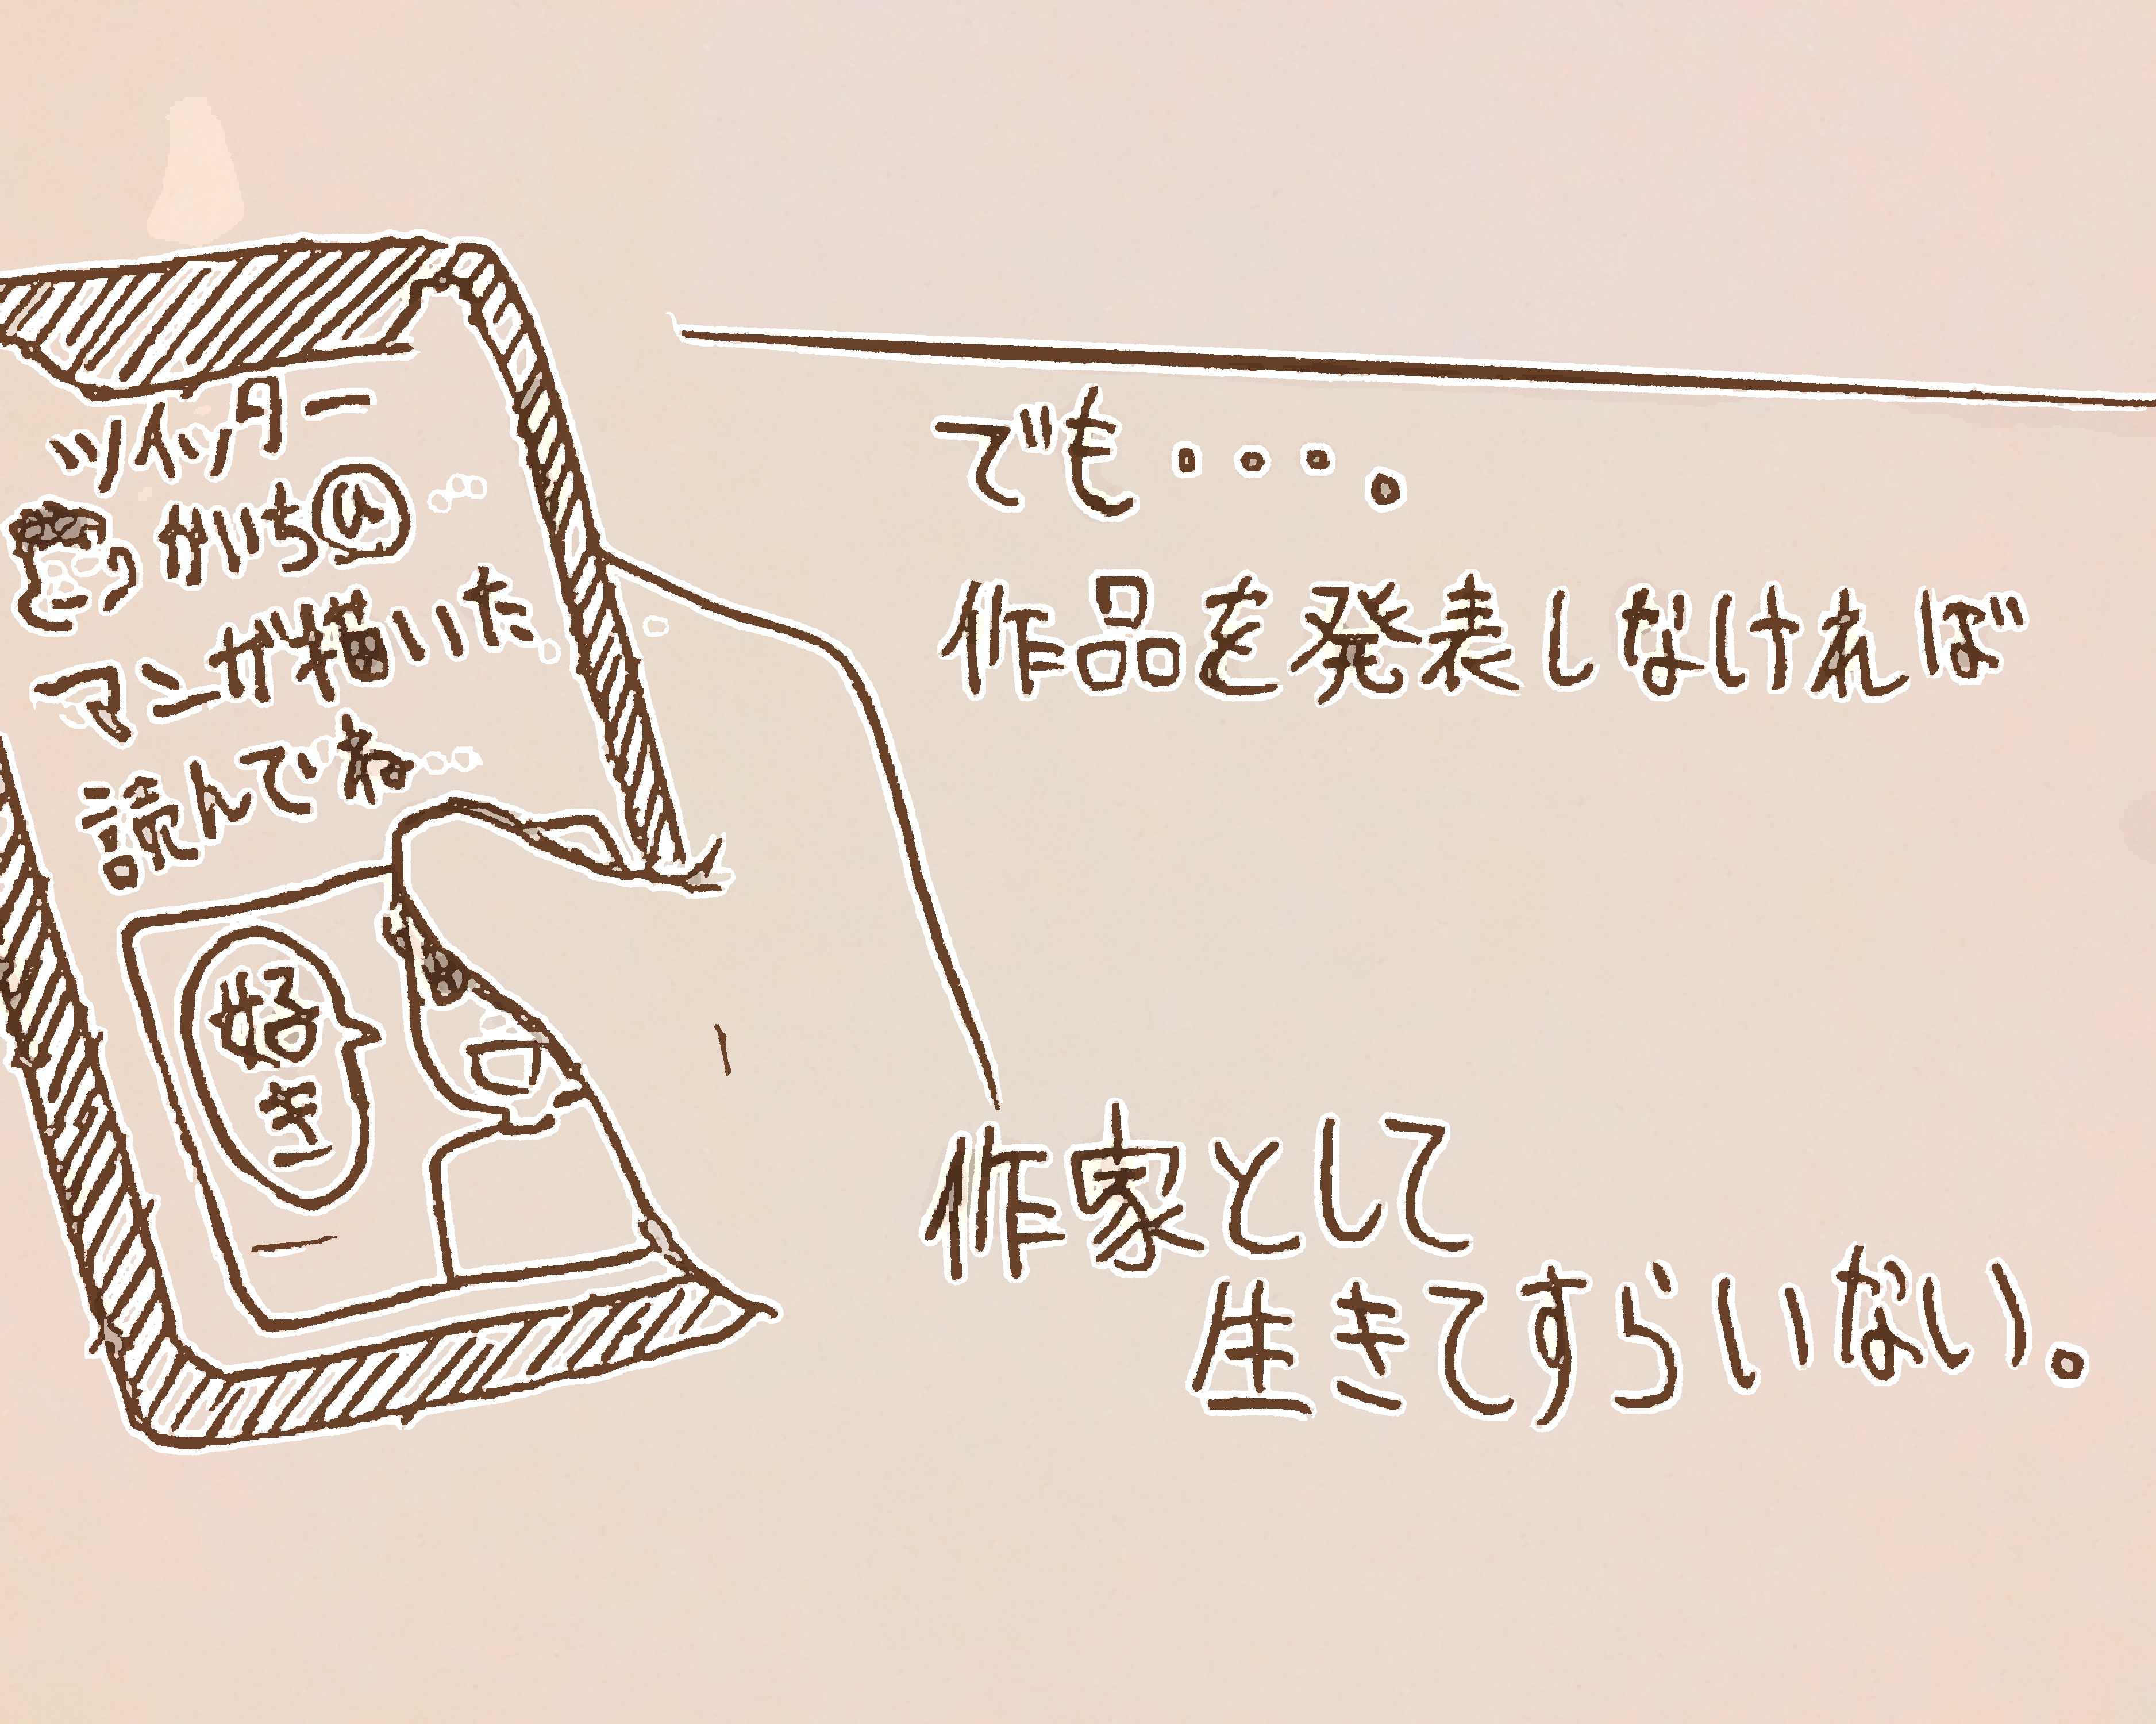 ツイッター
かいち㋪
マンガ描いた
読んでね
好き
でも・・・。
作品を発表しなければ
作家として
生きてすらいない。